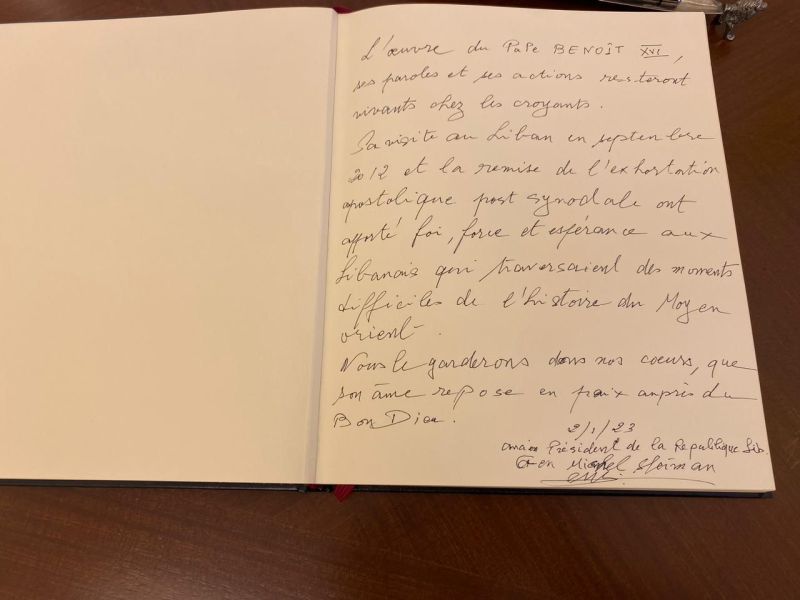 L'œuvre du Pape BENOÎT XVI,
ses paroles et ses actions resteront
vivants chez les croyants.
Sa visite au Liban en septembre
2012 et la remise de l'exhortation
apostolique post synodale ont
apporté foi, force et espérance aux
Libanais qui traversaient des moments
difficiles de l'histoire du Moyen
orient.
Nous le garderons dans nos coeurs, que
son âme repose en paix auprès du
Bon Dieu.
2/1/23
ancien Président de la République Lib.
Gen Michel Sleiman